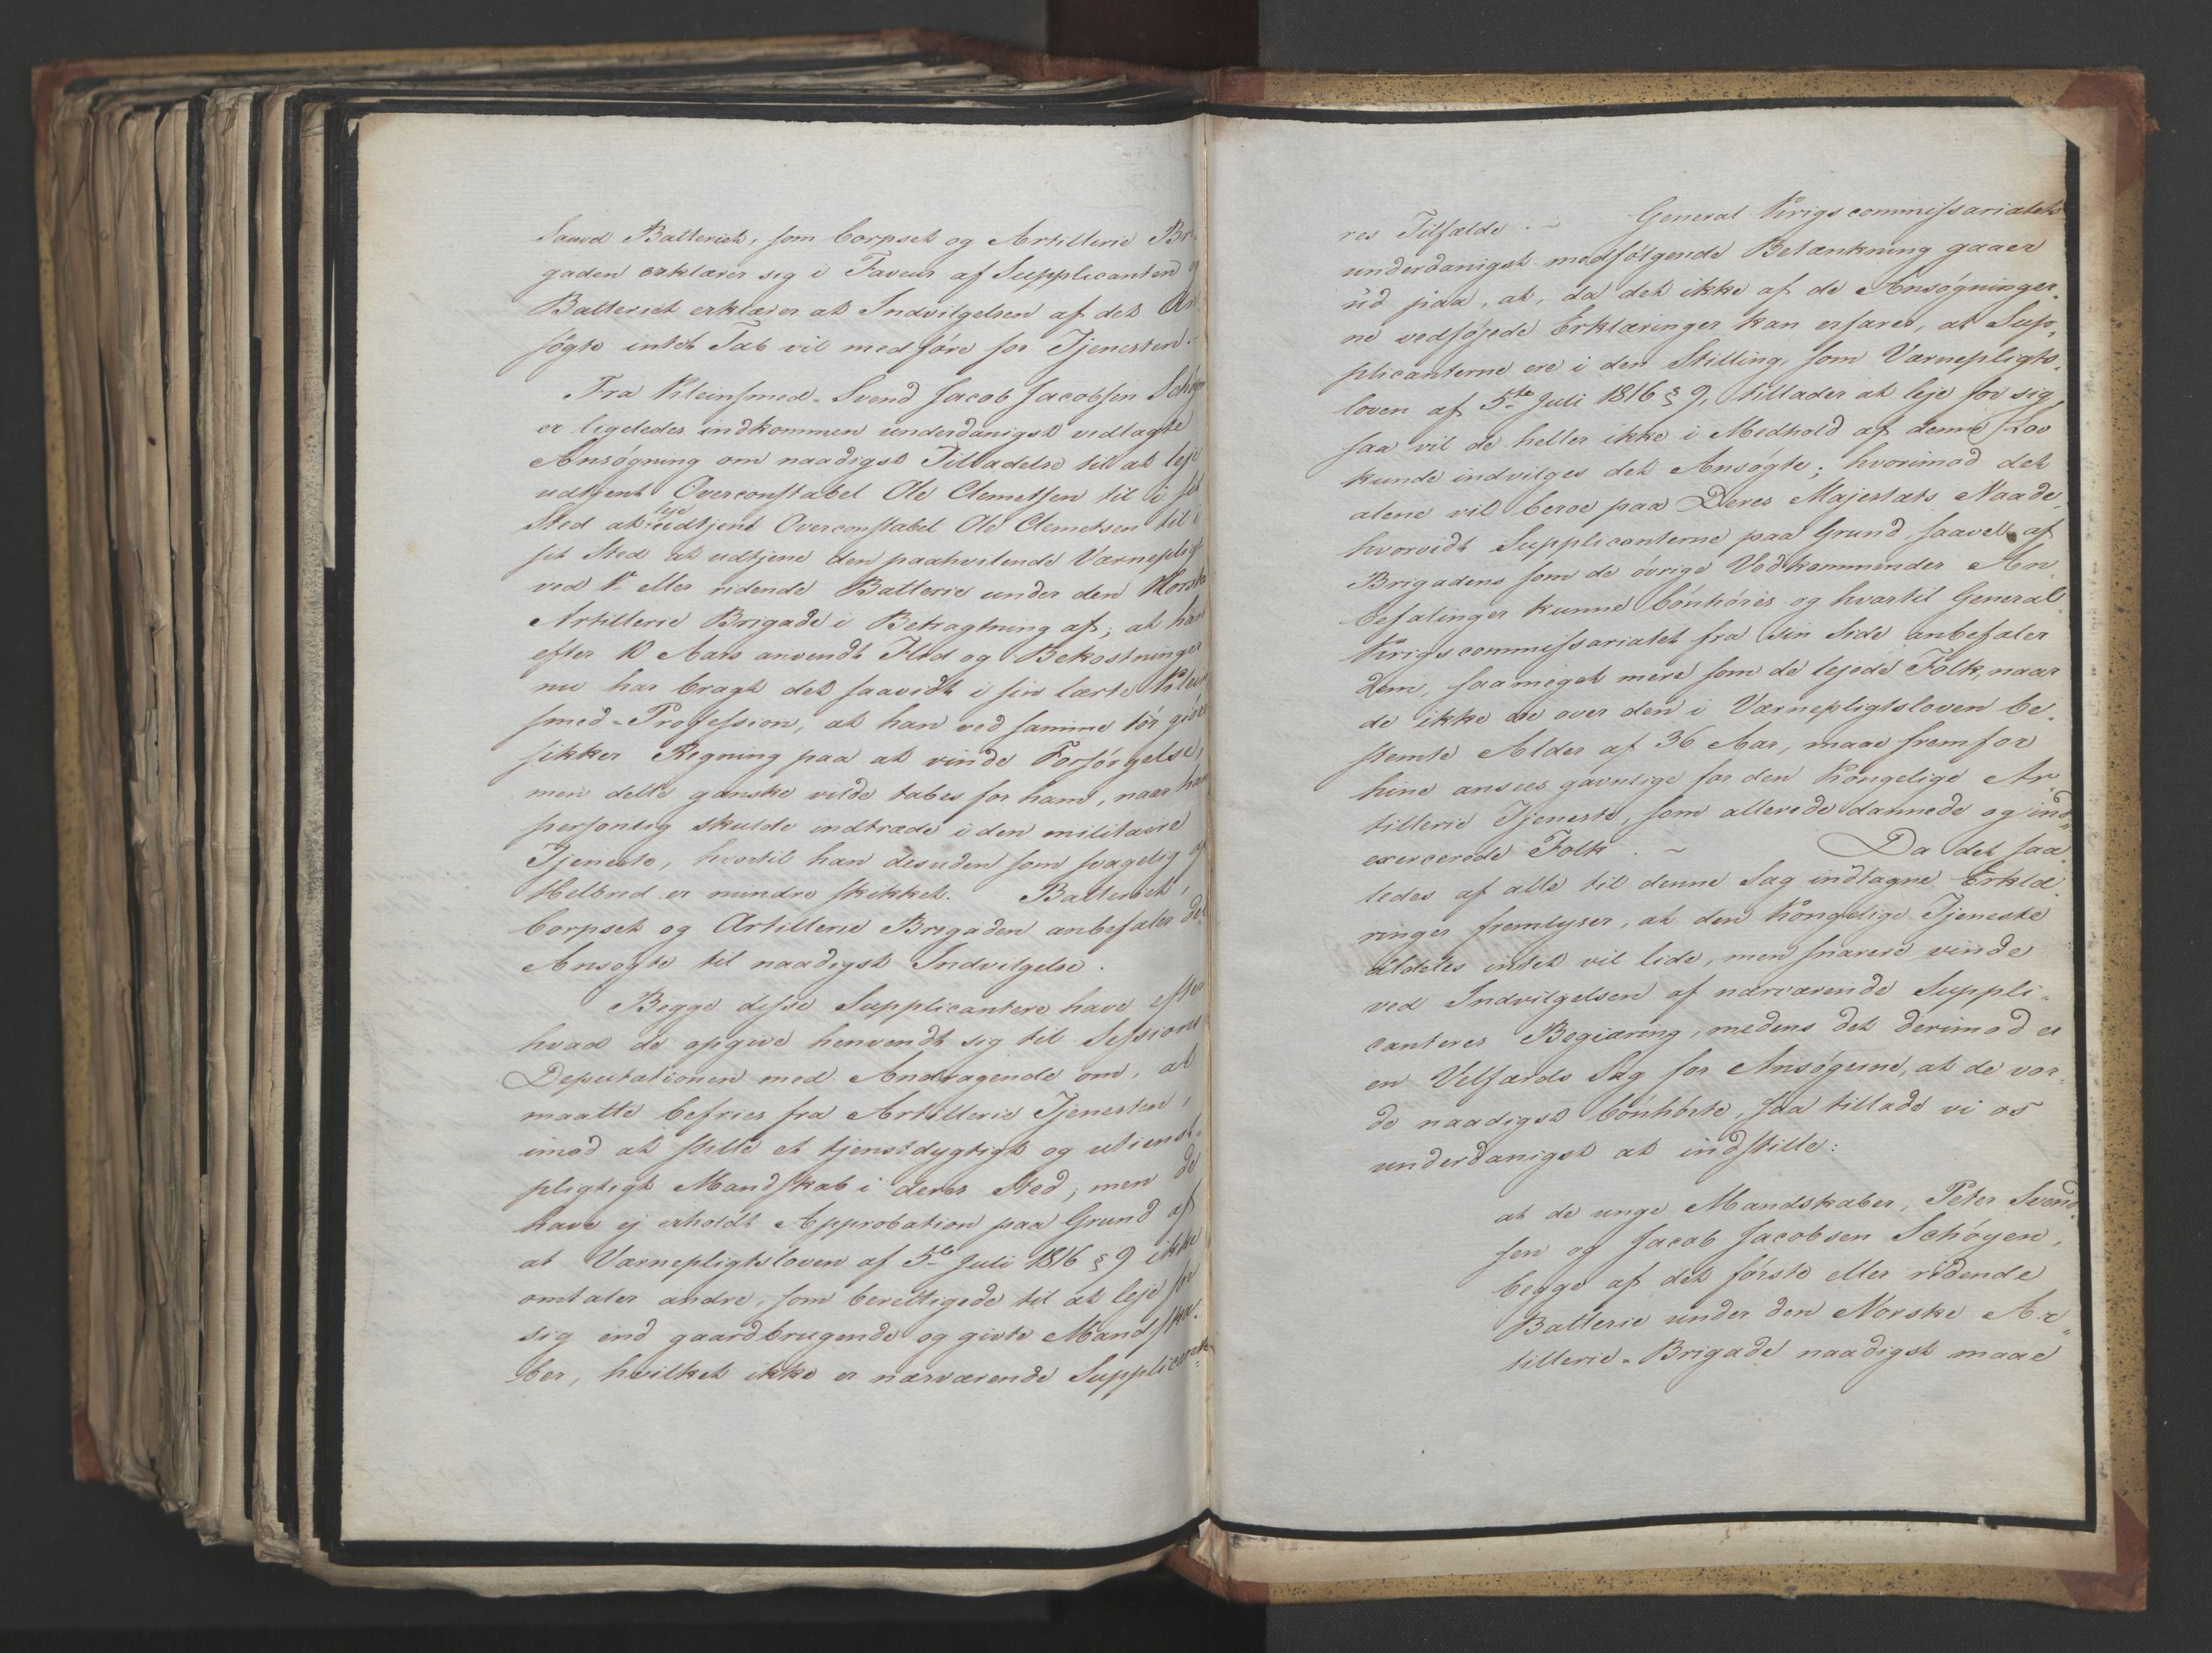 Saavel Batteriet, som Corpset og Artillerie Bri-
gaden erklærer sig i Faveur af Supplicanten og
Batteriet erklærer at Indvilgelsen af det An-
søgte intet Tab vil medføre for Tjenesten.
Fra Kleinsmed-Svend Jacob Jacobsen Schøyen
er ligeledes indkommen underdanigst vedlagte
Ansøgning om naadigst Tilladelse til at leje
udtjent Overconstabel Ole Clemetsen til i sit
Sted at leje udtjent Overconstabel Ole Clemetsen til i
sit Sted at udtjene den paahvilende Værnepligt
ved 1ste eller ridende Batterie under den Norske
Artillerie Brigade i Betragtning af; at han
efter 10 Aars anvendt Flid og Bekostninger
nu har bragt det saavidt i sin lærte Klein-
smed-Profession, at han ved samme tør giøre
sikker Regning paa at vinde Forsørgelse,
men dette ganske vilde tabes for ham, naar han
personlig skulde indtræde i den militaire
Tjeneste, hvortil han desuden som svagelig af
Helbred er mindre skikket. Batteriet,
Corpset og Artillerie Brigaden anbefaler det
Ansøgte til naadigst Indvilgelse.
Begge disse Supplicantere have efter
hvad de opgive henvendt sig til Sessions
Deputationen med Andragende om, at
maatte befries fra Artillerie Tjenesten,
imod at stille et tjenstdygtigt og utienst-
pligtigt Mandskab i deres Sted; men de
have ej erholdt Approbation paa Grund af
at Værnepligtsloven af 5te Juli 1816 § 9 ikke
omtaler andre, som berettigede til at leje for
sig end gaardbrugende og givte Mandska-
ber, hvilket ikke er nærværende Supplicante-
res Tilfælde. ~ General Krigscommissariatets
underdanigst medfølgende Betænkning gaaer
ud paa, at, da det ikke af de Ansøgninger-
ne vedføjede Erklæringer kan erfares, at Sup-
plicanterne ere i den Stilling, som Værnepligts-
loven af 5te Juli 1816 § 9, tillader at leje for sig,
saa vil de heller ikke i Medhold af denne Lov
kunde indvilges det Ansøgte; hvorimod det
alene vil beroe paa Deres Majestæts Naade,
hvorvidt Supplicanterne paa Grund, saavel af
Brigadens som de øvrige Vedkommendes An-
befalinger kunne bønhøres og hvortil General-
Krigscommissariatet fra sin Side anbefaler
dem, saameget mere som de lejede Folk, naar
de ikke ere over den i Værnepligtsloven be-
stemte Alder af 36 Aar, maae fremfor
hine ansees gavnlige for den Kongelige Ar-
tillerie Tjeneste, som allerede dannede og ind-
exercerede Folk. ~ Da det saa-
ledes af alle til denne Sag indtagne Erklæ-
ringer fremlyser, at den Kongelige Tjeneste
aldeles intet vil lide, men snarere vinde
ved Indvilgelsen af nærværende Suppli-
canteres Begiæring, medens det derimod er
en Velfærds Sag for Ansøgerne, at de vor-
de naadigst bønhørte, saa tillade vi os
underdanigst at indstille:
at de unge Mandskaber, Peter Svend-
sen og Jacob Jacobsen Schøyen,
begge af det første eller ridende
Batterie under den Norske Ar-
tillerie-Brigade naadigst maae